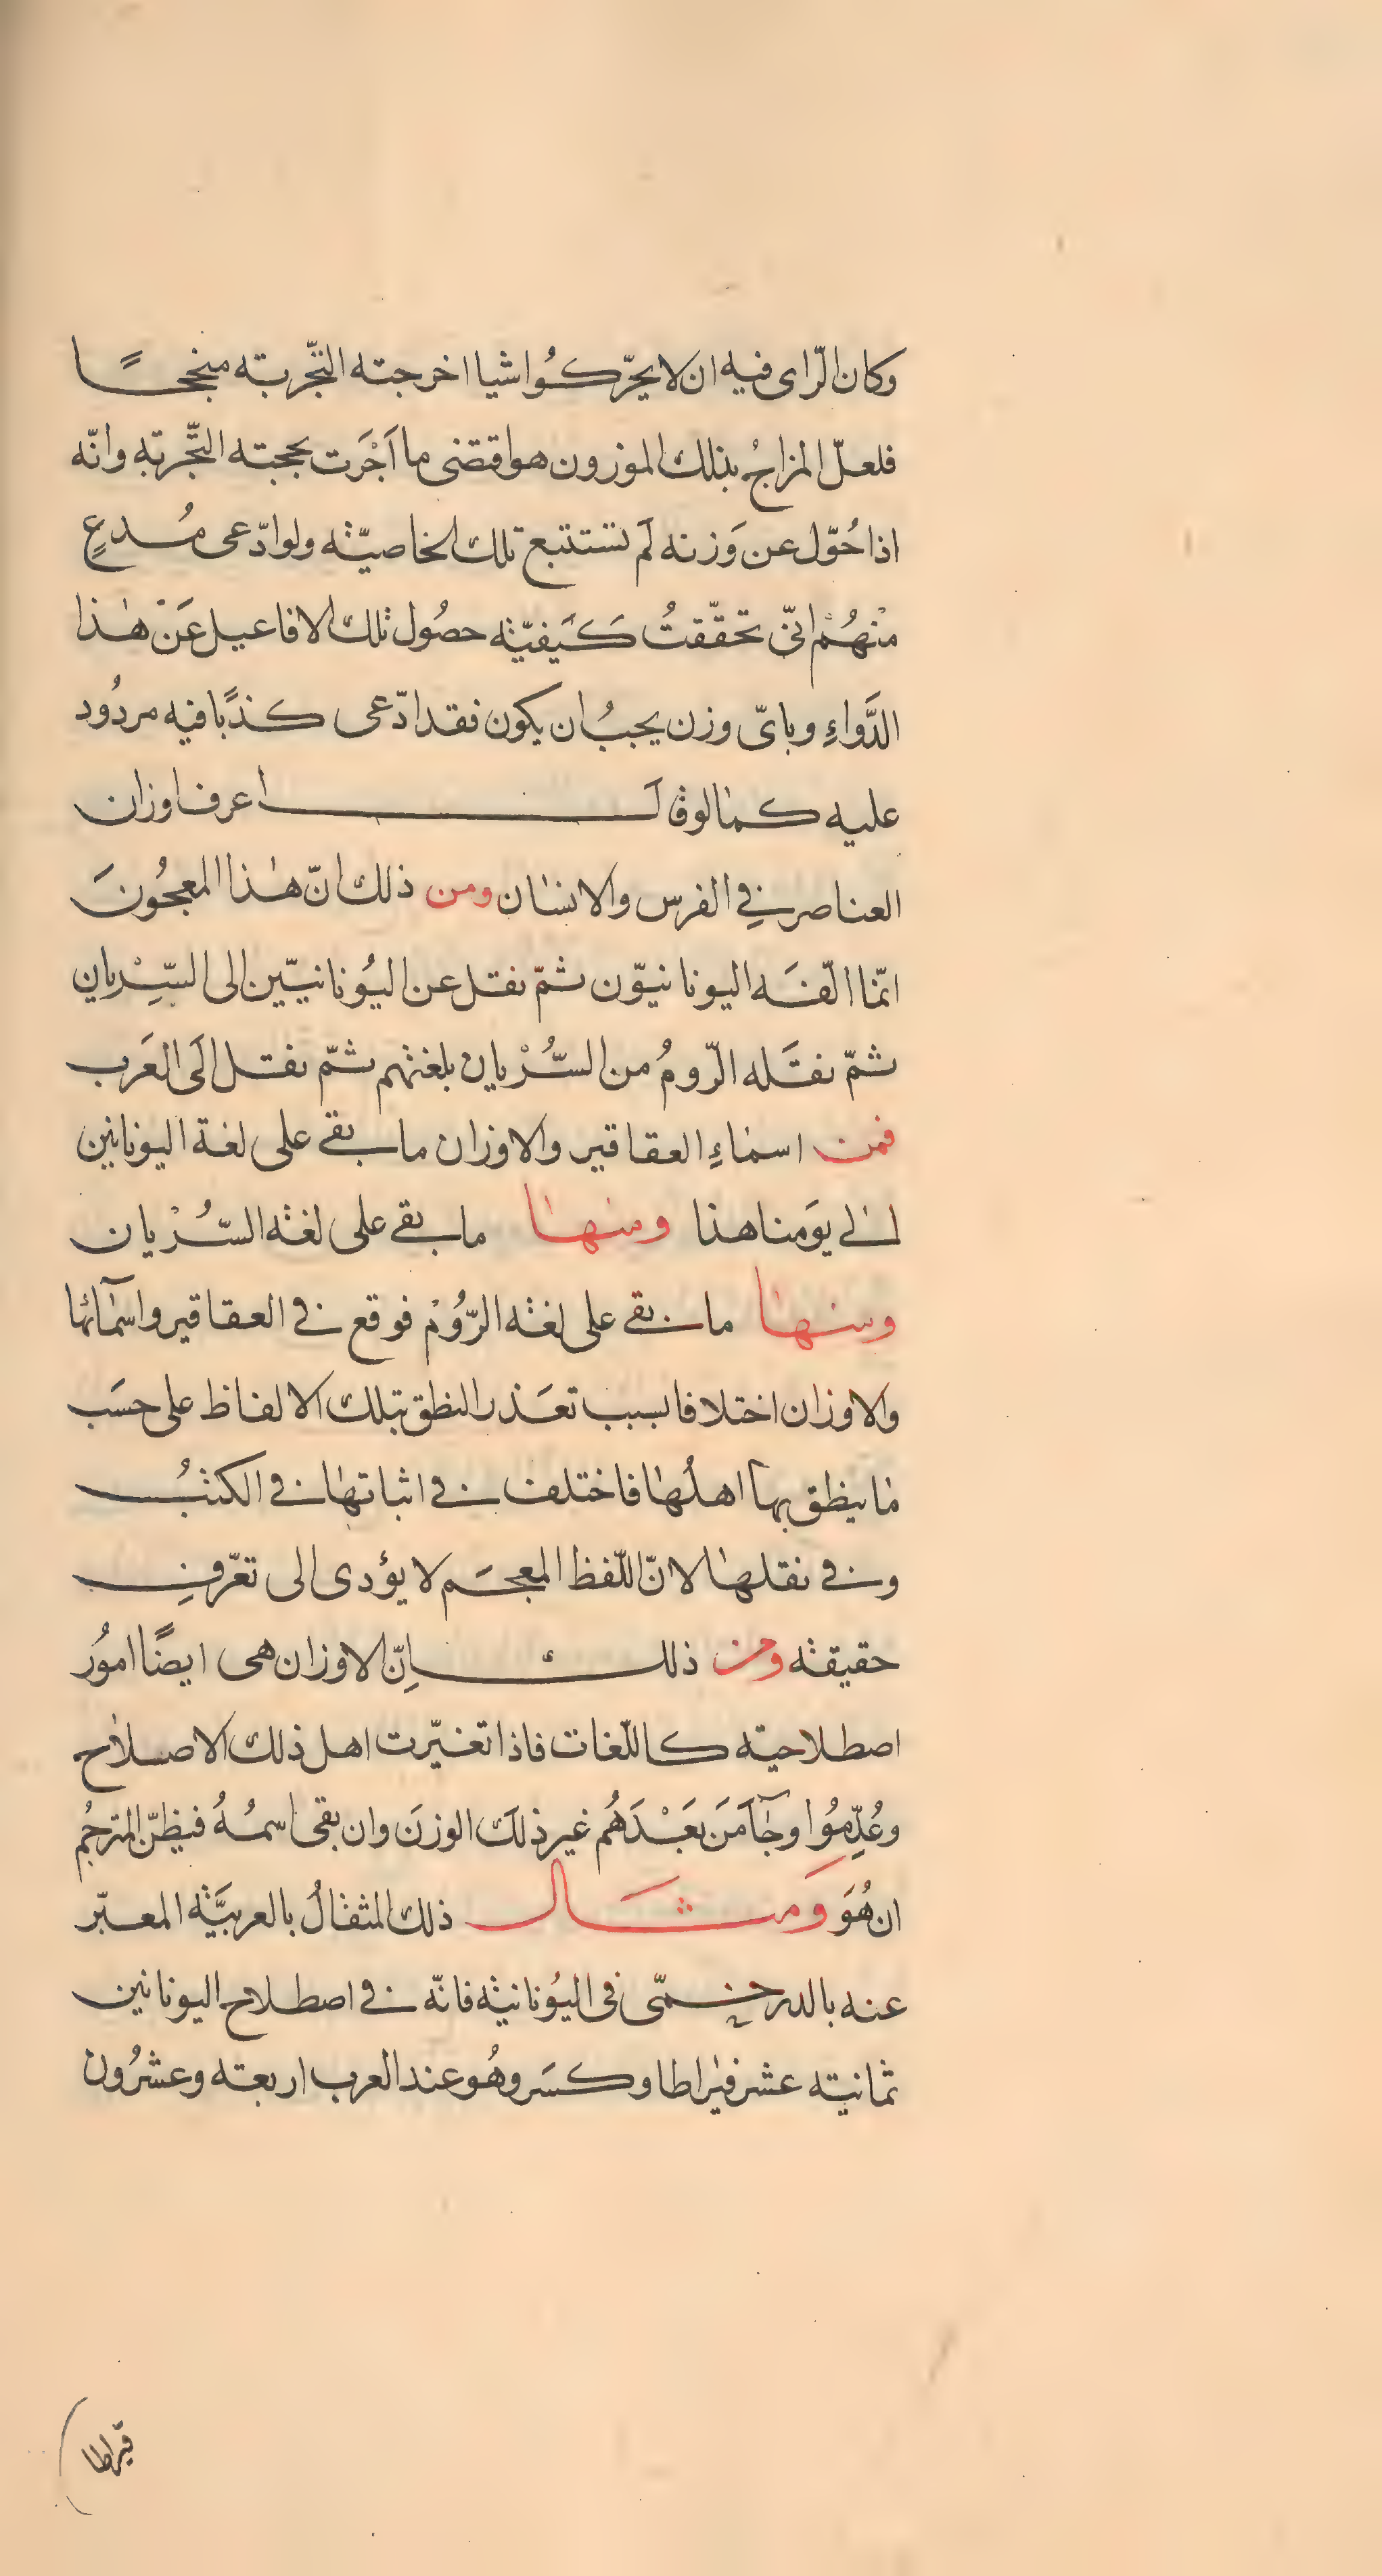 وكان الرّاى فيه ان لا يحرّكُوا شيا اخرجته التّجربته منجحًا
فلعلّ المزاجُ بذلك الموزون هو اقتضى ما اَجْرَت بحجبته التّجربتهِ وانّه
اذا حُوّل عن وَزنه لَم تستتبع تلك الخاصيّته ولو ادّعى مُدعٍ
منْهُمْ انىّ تحقّقتُ كَيَفيّته حصُول تلك الافاعيل عَنْ هٰذا
الدَّواءِ وباىّ وزن يجبُ ان يكون فقد ادّعى كذبًا فيه مردُود
عليه كمٰا لو قالَ اعرف اوزان
العناصر فِي الفرس والانسٰان ومن ذلك انّ هٰذا المعجُونَ
انمّا الّفَه اليونانيّون ثمّ نقل عن اليُونانييّن الى السِّرْيان
ثمّ نقَله الرّومُ من السُّرْيان بلغتهم ثمّ نقل الَى العَرب
فمن اسمٰاءِ العقاقير والاوزان ما بقى على لغة اليونانين
الٰى يوَمنا هذا ومنهٰا ما بقى على لغته السُّرْيان
ومنهٰا ما بقى على لغته الرّوُمْ فوقع فى العقاقير واسمٰآئها
والاوزان اختلافا بسبب تعَذر النطق بتلك الالفاظ على حسَب
مٰا ينطق بهٰا اهلُهٰا فاختلف فى اثباتهٰا فى الكتبُ
وفى نقلهٰا لانّ اللّفظ المعجَم لا يؤدى الى تعرّفِ
حقيقته ومن ذلك اِنّ الاوزان هى ايضًا امُور
اصطلاحيته كاللّغات فاذا تغيّرت اهل ذلك الاصلاٰح
وعُدِّموُا وجٰآ مَنَ بعَدْهُم غير ذلَك الوزنَ وان بقى اسمُهُ فيظنّ المترجُم
ان هُوَ وَمثَال ذلك المثقالُ بالعربيَّته المعبّر
عنه بالدرخمّى فى اليُونانيته فانّه فى اصطلاح اليونانين
ثمانيته عشر قيٰراطا وكسَر وهُو عند العرب اربعته وعشرُون
قيراطا